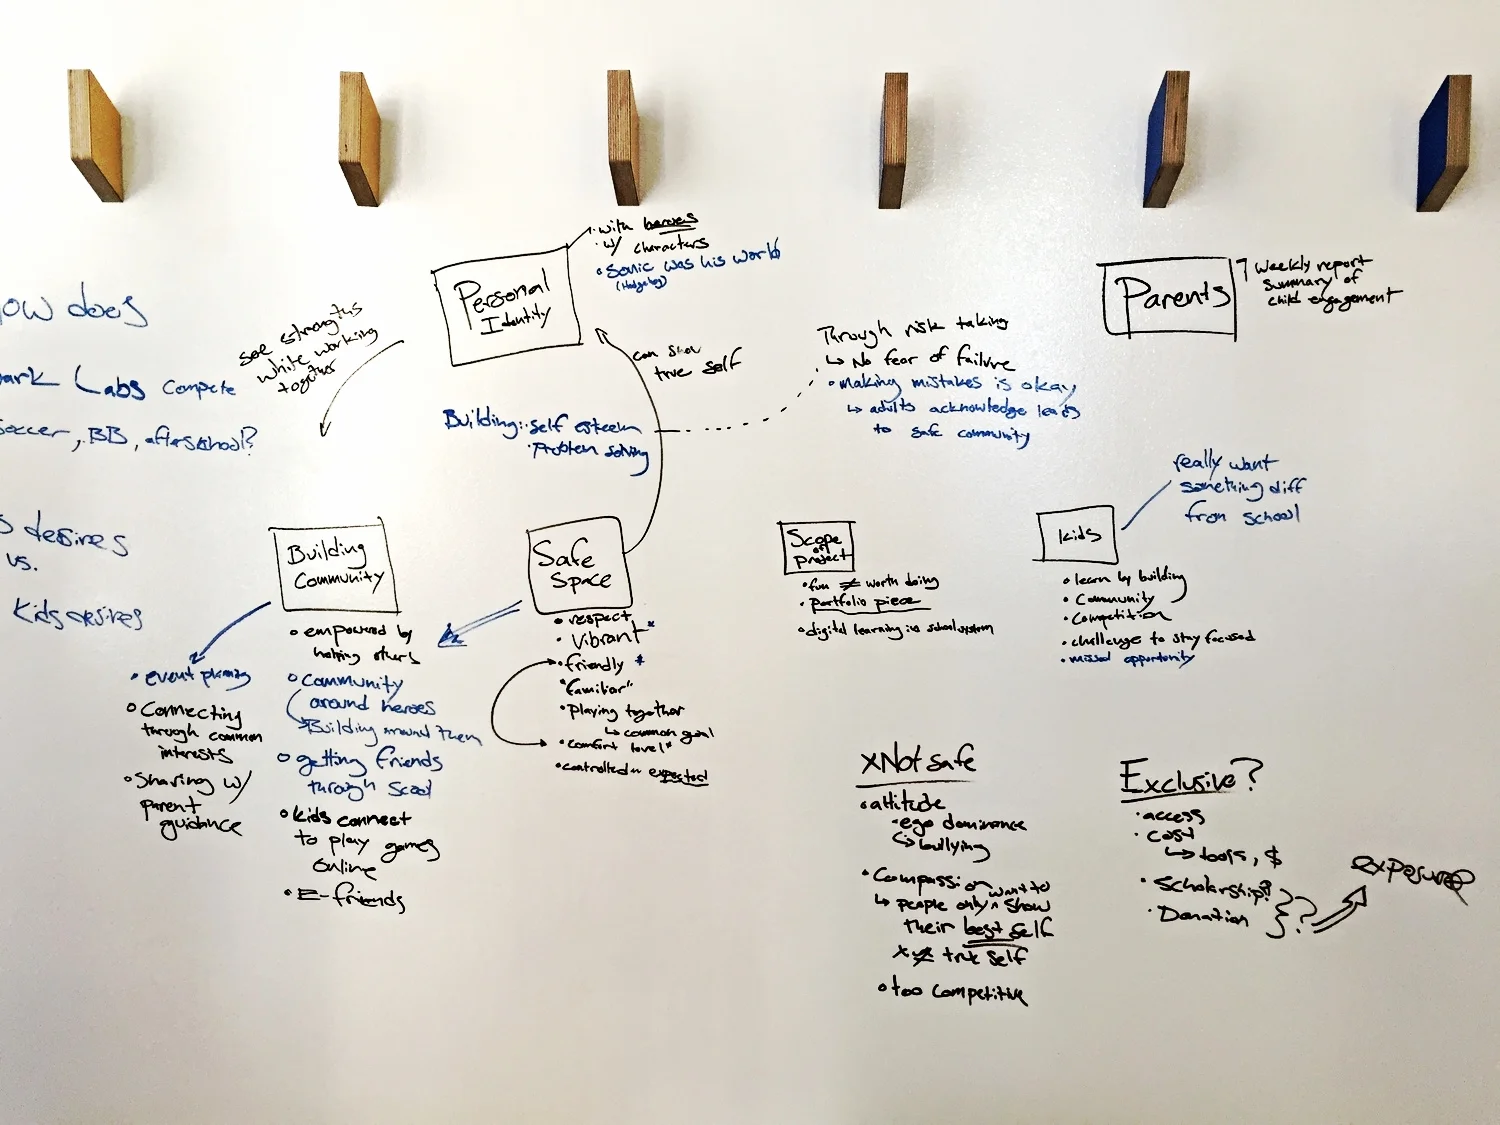 with heroes
w/ characters
Sonic was his world
(Hedgehog)
Personal
Identity
Parents
Weekly report
summary of
child engagement
ow does
ark Labs compete
soccer, BB, afterschool?
s desires
vs.
Kids desires
see strengths
while working
together
can show
true self
Building: self esteem
problem solving
Through risk taking
↳ No fear of failure
making mistakes is okay
↳ adults acknowledge leads
to safe community
really want
something diff
from school
Building
Community
empowered by
helping others
Community
around heroes
Building around them
getting friends
through
kids connect
to play games
online
E-friends
event planning
Connecting
through common
interests
Sharing w/
parent
guidance
Safe
Space
respect
Vibrant*
friendly *
"familiar"
playing together
↳ common goal
comfort level*
controlled expected
Scope
of
project
fun ≠ worth doing
portfolio piece
digital learning in school system
kids
learn by building
Community
Competition
challenge to stay focused
missed opportunity
x Not safe
attitude
ego dominance
↳ bullying
Compassion
want to
↳ people only ^ show
their best self
x ≠ true self
too competitive
Exclusive?
access
cost
↳ tools, $
Scholarship?
Donation
?
exposure